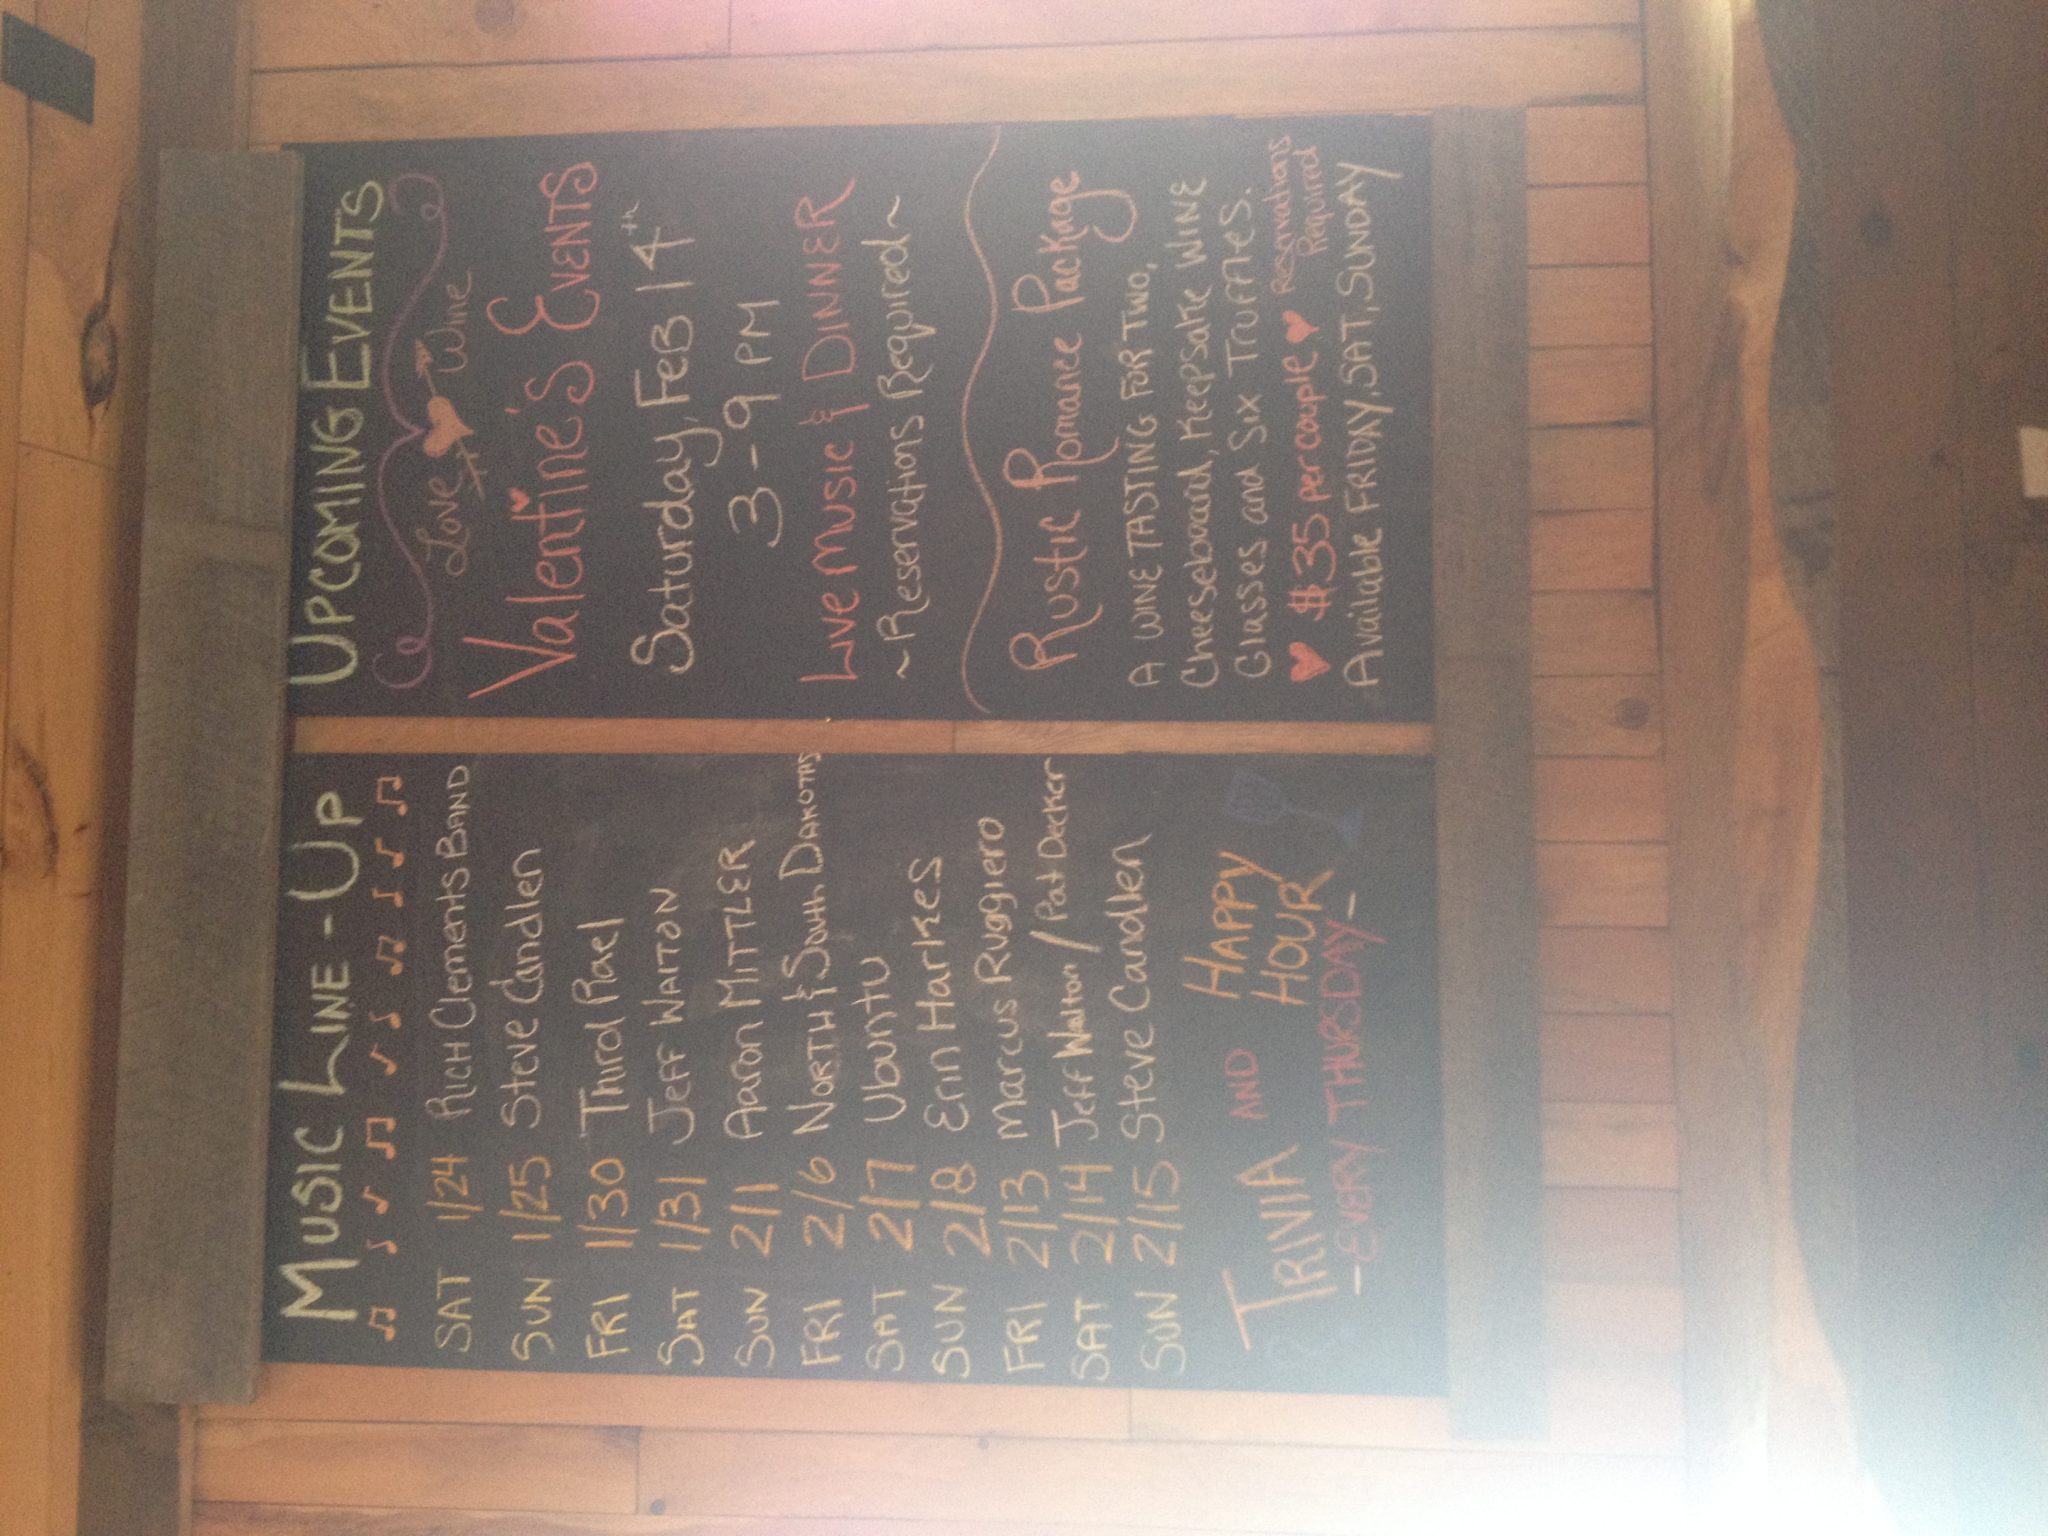 MUSIC LINE-UP
SAT 1/24 RICH CLEMENTS BAND
SUN 1/25 Steve Candlen
FRI 1/30 Third Rael
SAT 1/31 JEFF WALTON
SUN 2/1 Aaron MITTLER
FRI 2/6 NORTH & SOUTH DAKOTAS
SAT 2/7 UbunTU
SUN 2/8 Erin HarkES
FRI 2/13 Marcus Ruggiero
SAT 2/14 Jeff Walton / Pat Decker
SUN 2/15 Steve Candlen
TRIVIA AND HAPPY HOUR
-EVERY THURSDAY-
UPCOMING EVENTS
Love Wine
Valentine's EVENTS
Saturday, FEB 14th
3-9 PM
LIVE MUSIC & DINNER
~Reservations Required~
Rustic Romance Package
A WINE TASTING FOR TWO,
Cheeseboard, KeepSake WINE
Glasses and Six Truffles.
$35 per couple Reservations Required
Available FRIDAY, SAT, SUNDAY